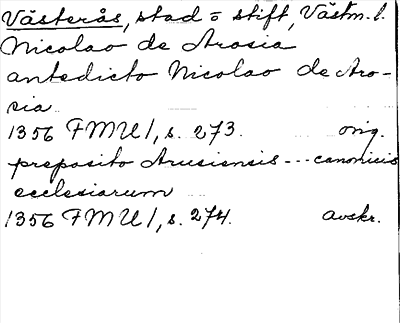 Västerås, stad o stift, Västm. l.
Nicolao de Arosia
antedicto Nicolao de Aro-
sia
1356 FMU 1, s. 273. orig.
preposito Arusiensis --- canonicis
ecclesiarum
1356 FMU 1, s. 274. avskr.